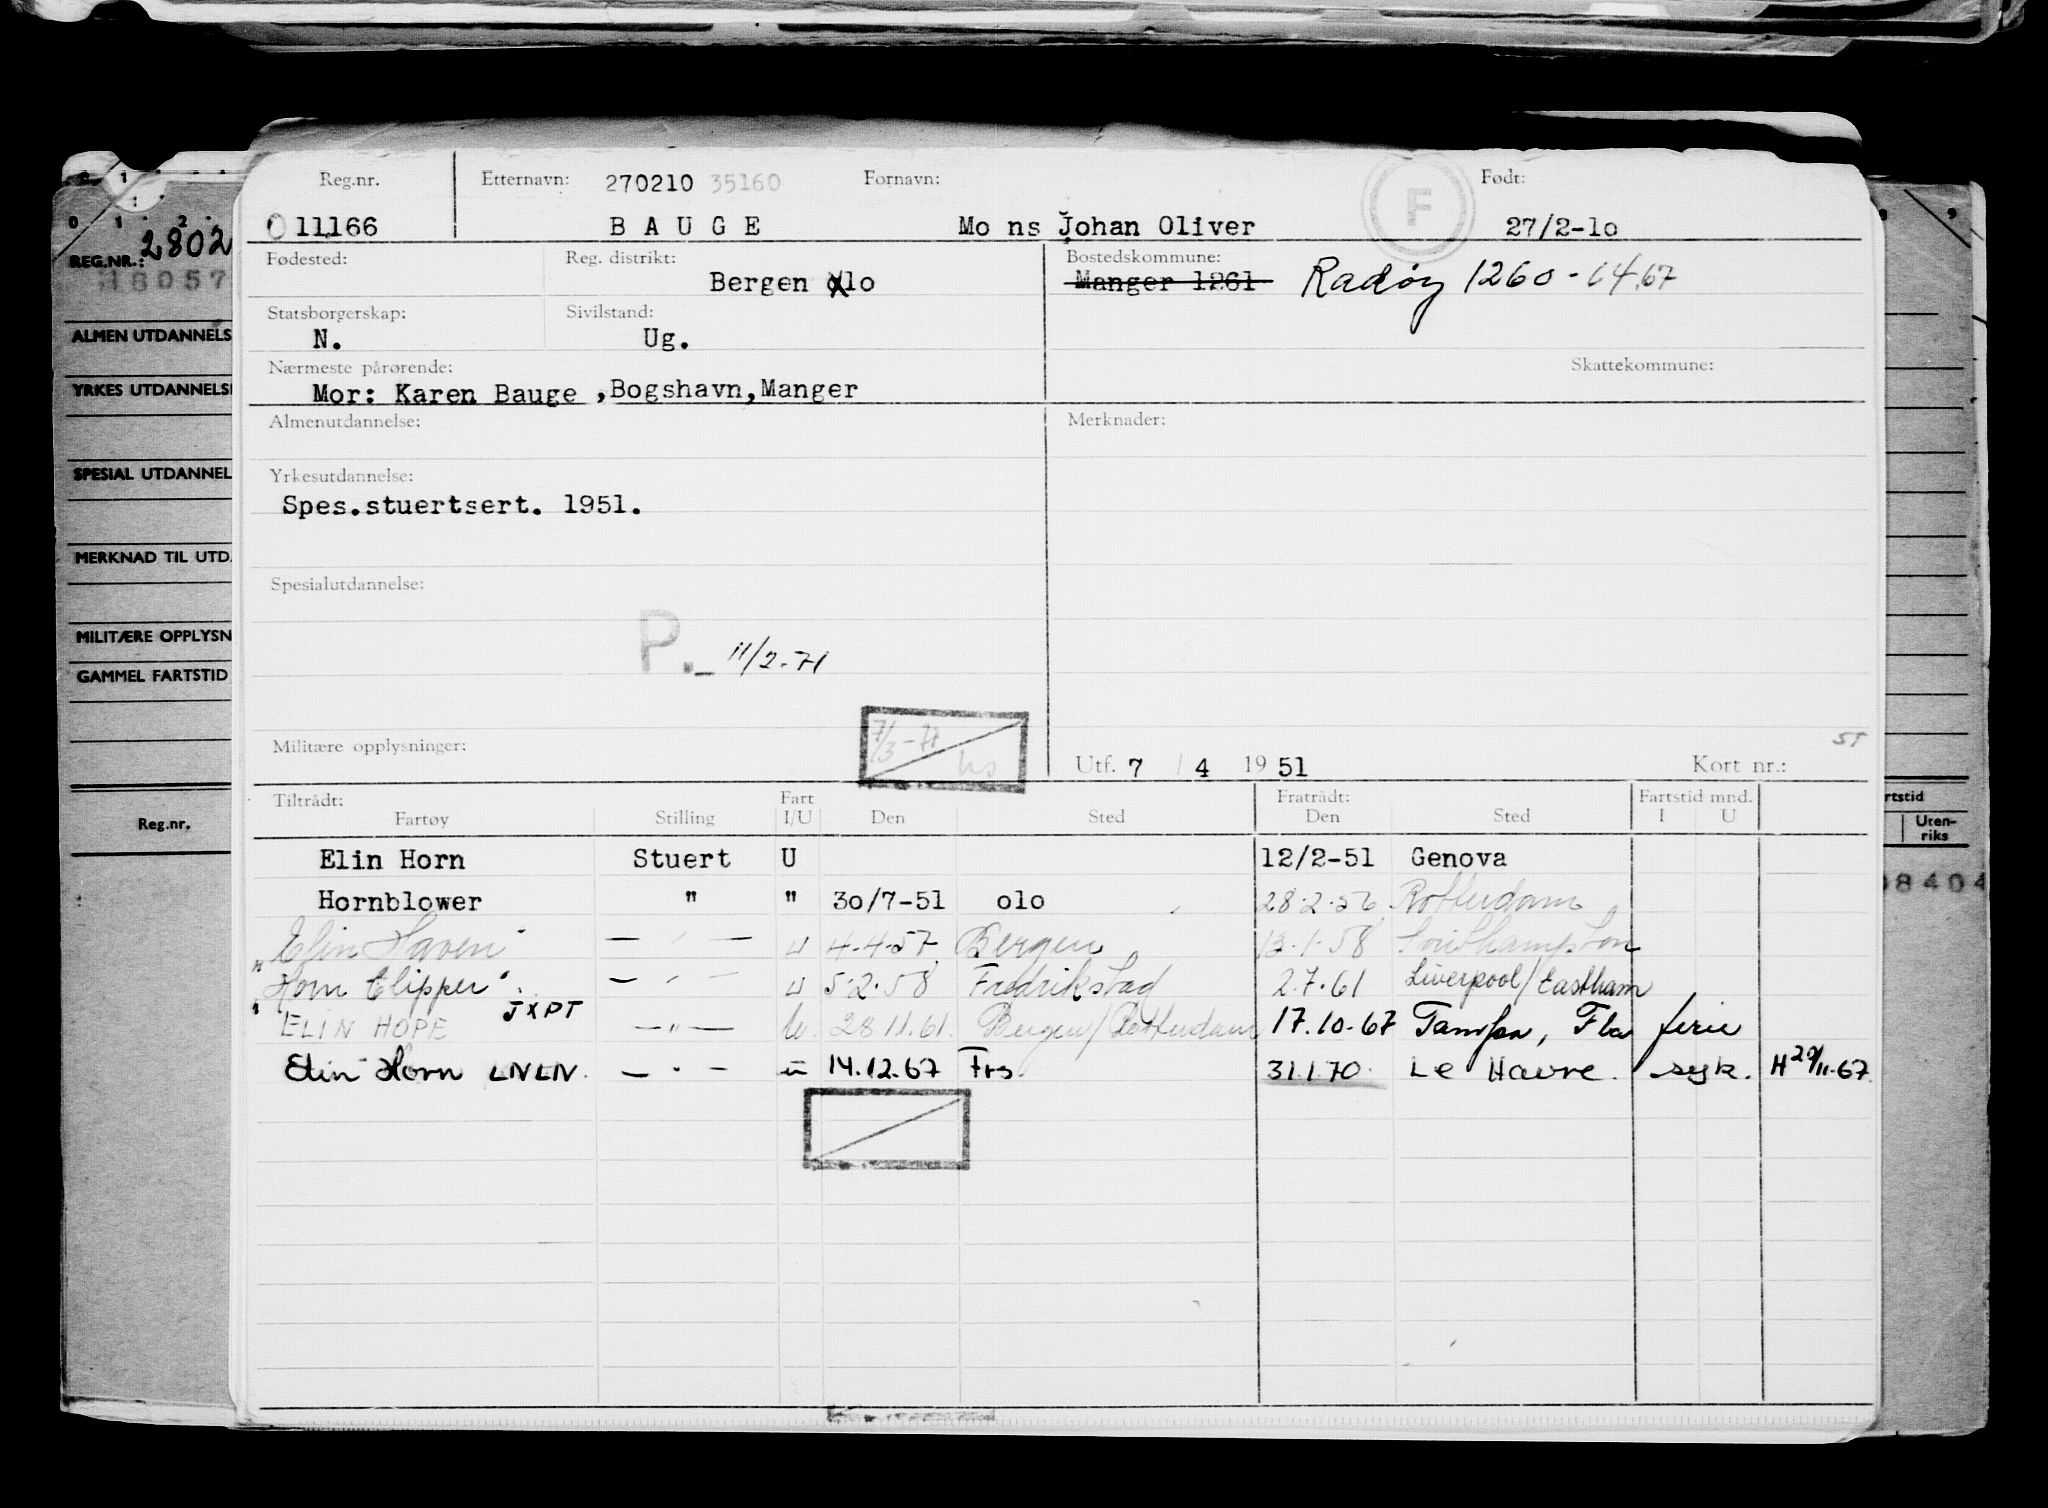 Reg.nr. Etternavn: 270210 35160 Fornavn: F Født:
011166 BAUGE Mo ns Johan Oliver 27/2-1o
Fødested: Reg. distrikt: Bostedskommune:
Bergen olo Manger 1261 Radøy 1260-1/4.67
Statsborgerskap: Sivilstand:
N. Ug.
Nærmeste pårørende: Skattekommune:
Mor: Karen Bauge ,Bogshavn,Manger
Almenutdannelse: Merknader:
Yrkesutdannelse:
Spes.stuertsert. 1951.
Spesialutdannelse:
P. 11/2-71
7/3-71 hs
Militære opplysninger: Utf. 7 / 4 19 51 Kort nr.: ST
Tiltrådt: Fart Fratrådt: Fartstid mnd.
Fartøy Stilling I/U Den Sted Den Sted I U
Elin Horn Stuert U 12/2-51 Genova
Hornblower " " 30/7-51 olo 28.2.56 Rotterdam
"Elin Haven" — " — u 4.4.57 Bergen 13.1.58 Southampton
"Horn Clipper" — " — u 5.2.58 Fredrikstad 2.7.61 Liverpool/Eastham
ELIN HOPE JXPT — " — u. 28.11.61. Bergen/Rotterdam 17.10.67 Tampa, Fla ferie
Elin Horn LNLN. — " — u 14.12.67 Frs. 31.1.70 Le Havre. syk. H 29/11-67
0 1 2
REG.NR.: 2802
18057
ALMEN UTDANNELS
YRKES UTDANNELS
SPESIAL UTDANNEL
MERKNAD TIL UTD.
MILITÆRE OPPLYSN
GAMMEL FARTSTID
Reg.nr.
9
rtstid
Uten-
riks
8404